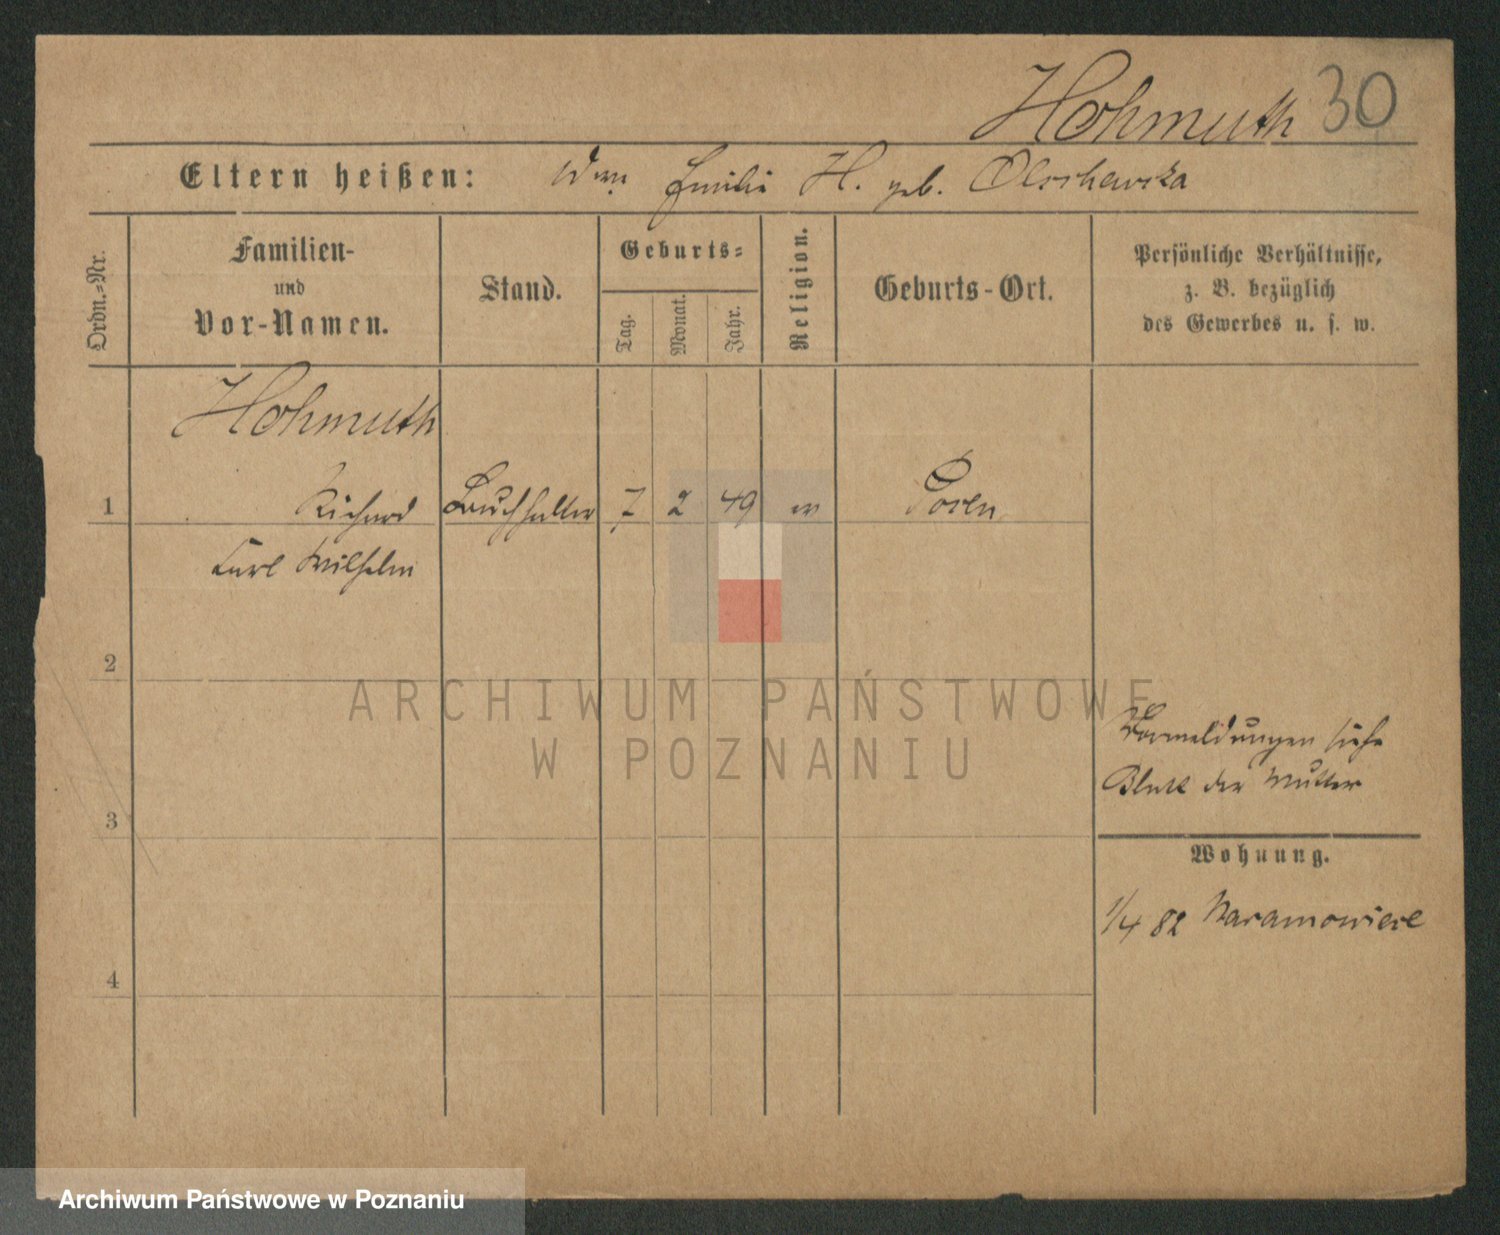 Hohmuth 30
Eltern heißen: Wwe. Emilie H. geb. Olschewska
Ordn.-Nr.
Familien-
und
Vor-Namen.
Stand.
Geburts-
Tag.
Monat.
Jahr.
Religion.
Geburts-Ort.
Persönliche Verhältnisse,
z. B. bezüglich
des Gewerbes u. s. w.
Hohmuth
1 Richard Buchhalter 7 2 49 ev Posen
Carl Wilhelm
2
ARCHIWUM PAŃSTWOWE
W POZNANIU
Vormeldungen siehe
Blatt der Mutter
3
Wohnung.
1/4 82 Naramowice
4
Archiwum Państwowe w Poznaniu